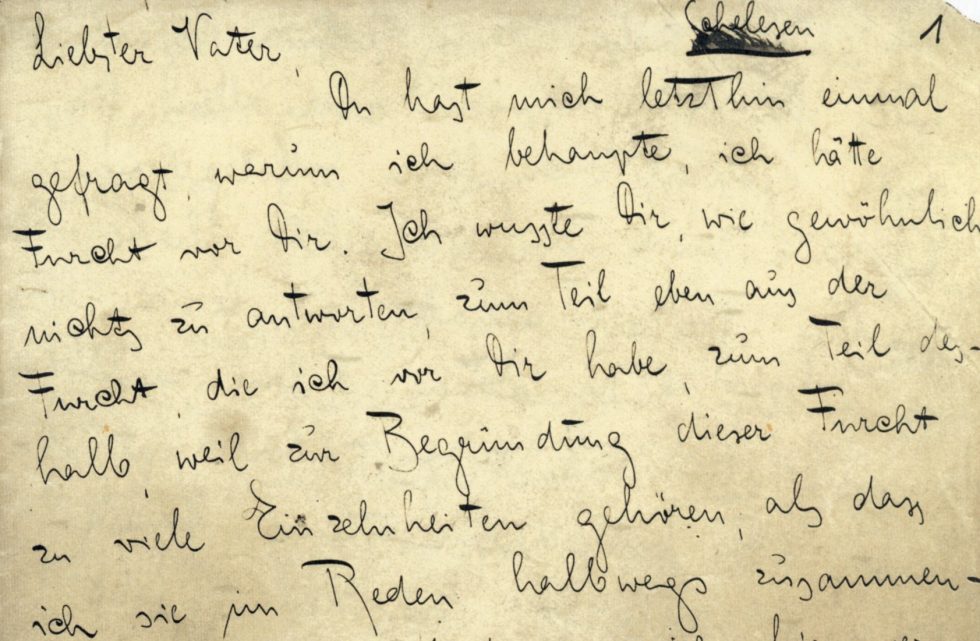 Schelesen 1
Liebster Vater,
Du hast mich letzthin einmal
gefragt, warum ich behaupte, ich hätte
Furcht vor Dir. Ich wusste Dir, wie gewöhnlich,
nichts zu antworten, zum Teil eben aus der
Furcht, die ich vor Dir habe, zum Teil des-
halb, weil zur Begründung dieser Furcht
zu viele Einzelnheiten gehören, als dass
ich sie im Reden halbwegs zusammen-